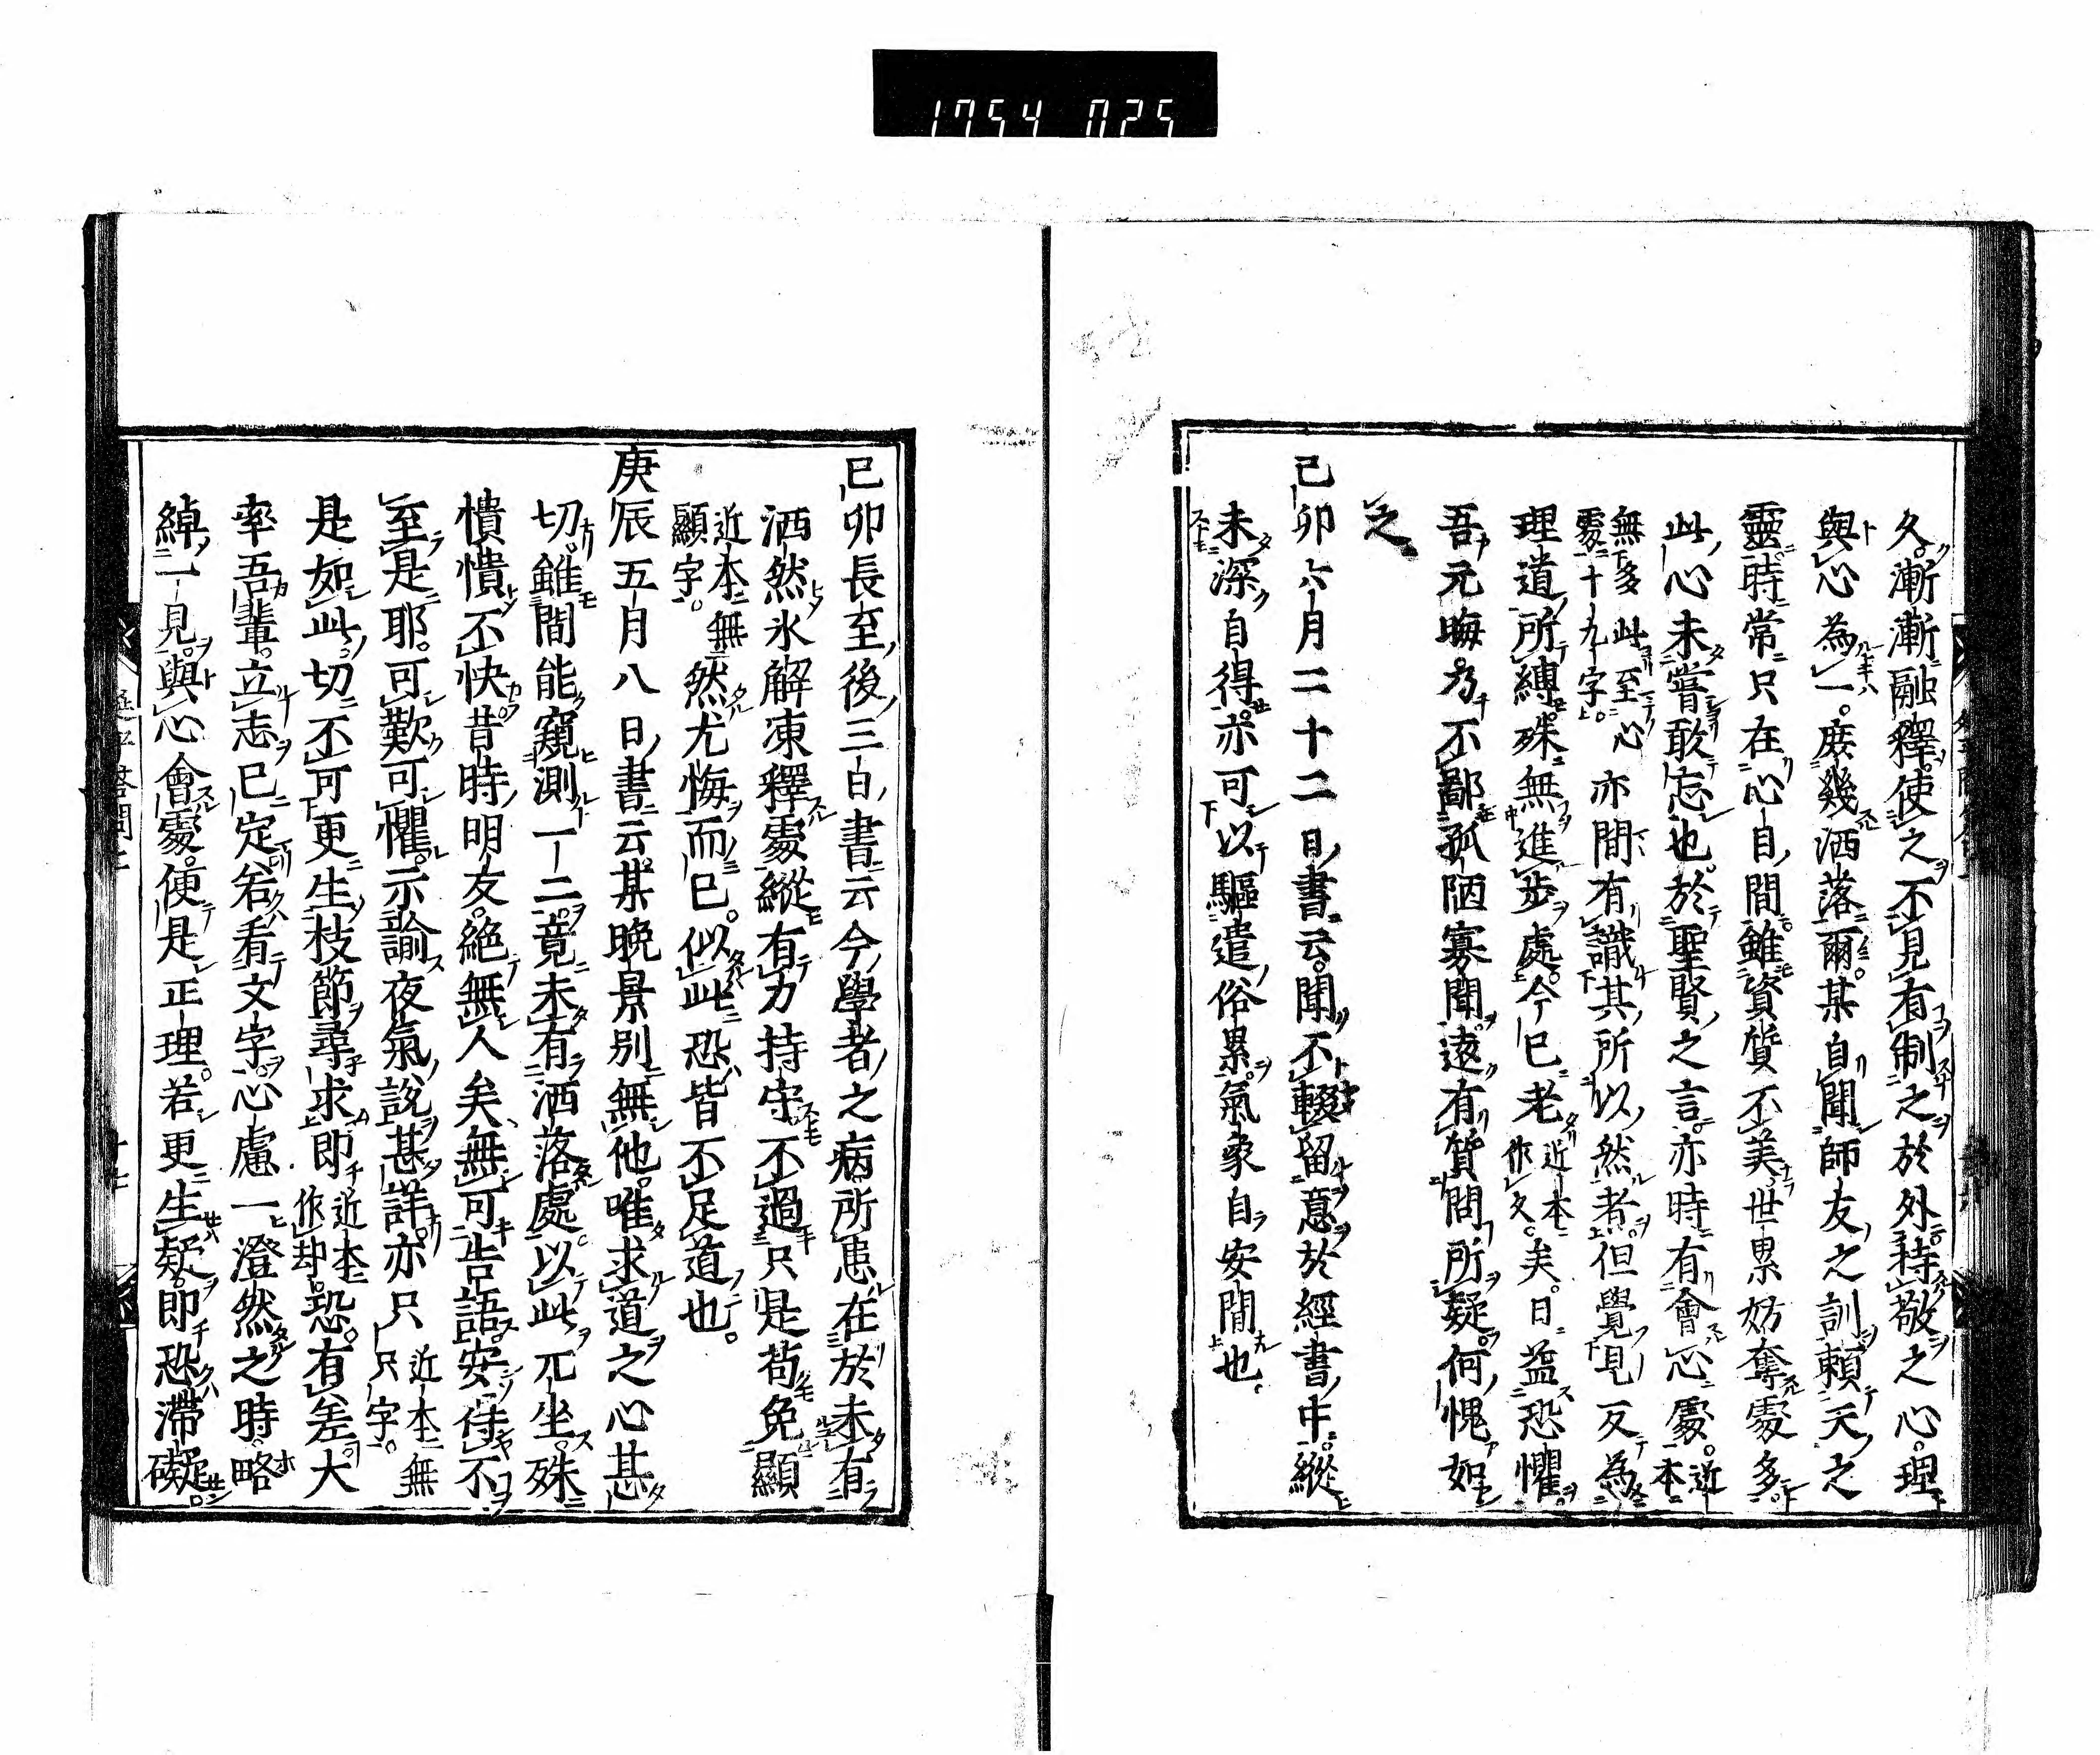 1754 025
久漸漸融釋。使之不見有制之於外。持敬之心。理
與心為一。庶幾洒落爾。某自聞師友之訓賴天之
靈時常只在心自間雖資質不美世累妨奪處多
此心未嘗敢忘也。於聖賢之言亦時有會心處。近本
無多此至心處十九字。亦間有識其所以然者。但覺見反為
理道所縛殊無進步處。今已老近本作久。矣。日益恐懼。
吾元晦乃不鄙孤陋寡聞遠有質問所疑。何愧如
之
己卯六月二十二日書云。聞不輟留意於經書中。縱
未深自得亦可以驅遣俗累。氣象自安閒也
己卯長至後三日書云今學者之病所患在於未有
洒然氷解凍釋處縱有力持守不過只是苟免顯
近本無顯字。然尤悔而已。似此恐皆不足道也。
庚辰五月八日書云。某晚景別無他。唯求道之心甚
切。雖間能窺測一二。竟未有洒落處。以此兀坐。殊
憒憒不快。昔時朋友。絕無人矣。無可告語。安得不
至是耶。可歎可懼。示諭夜氣說甚詳。亦只近本無只字。
是如此。切不可更生枝節尋求。即近本作却。恐。有差。大
率吾輩。立志已定。若看文字。心慮一澄然之時。略
綽一見。與心會處。便是正理。若更生疑。即恐滯礙。